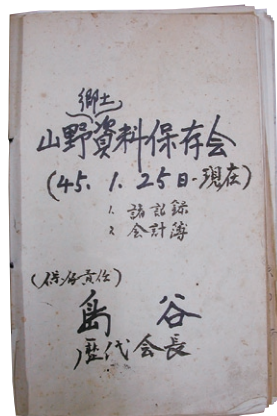 郷土
山野資料保存会
(45. 1. 25日 現在)
1. 諸記録
2. 会計簿
(保存責任)
島谷
歴代会長